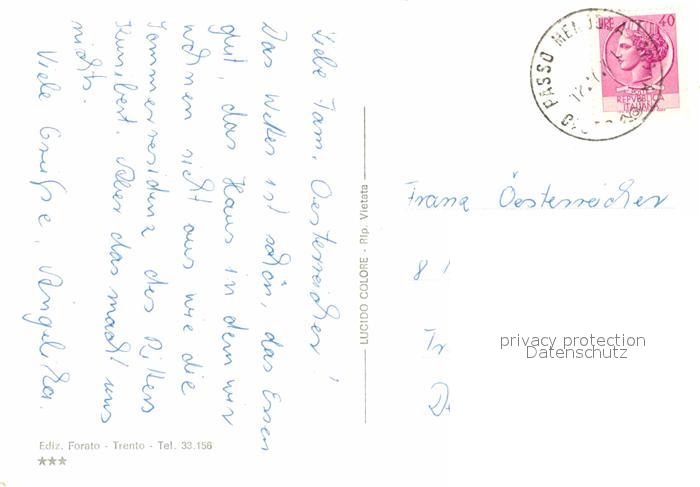 Liebe Fam. Oesterreicher!
Das Wetter ist schön, das Essen
gut, das Haus in dem wir
wohnen sieht aus wie die
Sommerresidenz des Ritters
Kunibert. Aber das macht uns
nichts.
Viele Grüße, Angelika.
LUCIDO COLORE - Rip. Vietata
Ediz. Forato - Trento - Tel. 33.156
★★★
PASSO
LIRE 40
REPVBBLICA
ITALIANA
Franz Österreicher
8 1
Tr
D.
privacy protection
Datenschutz